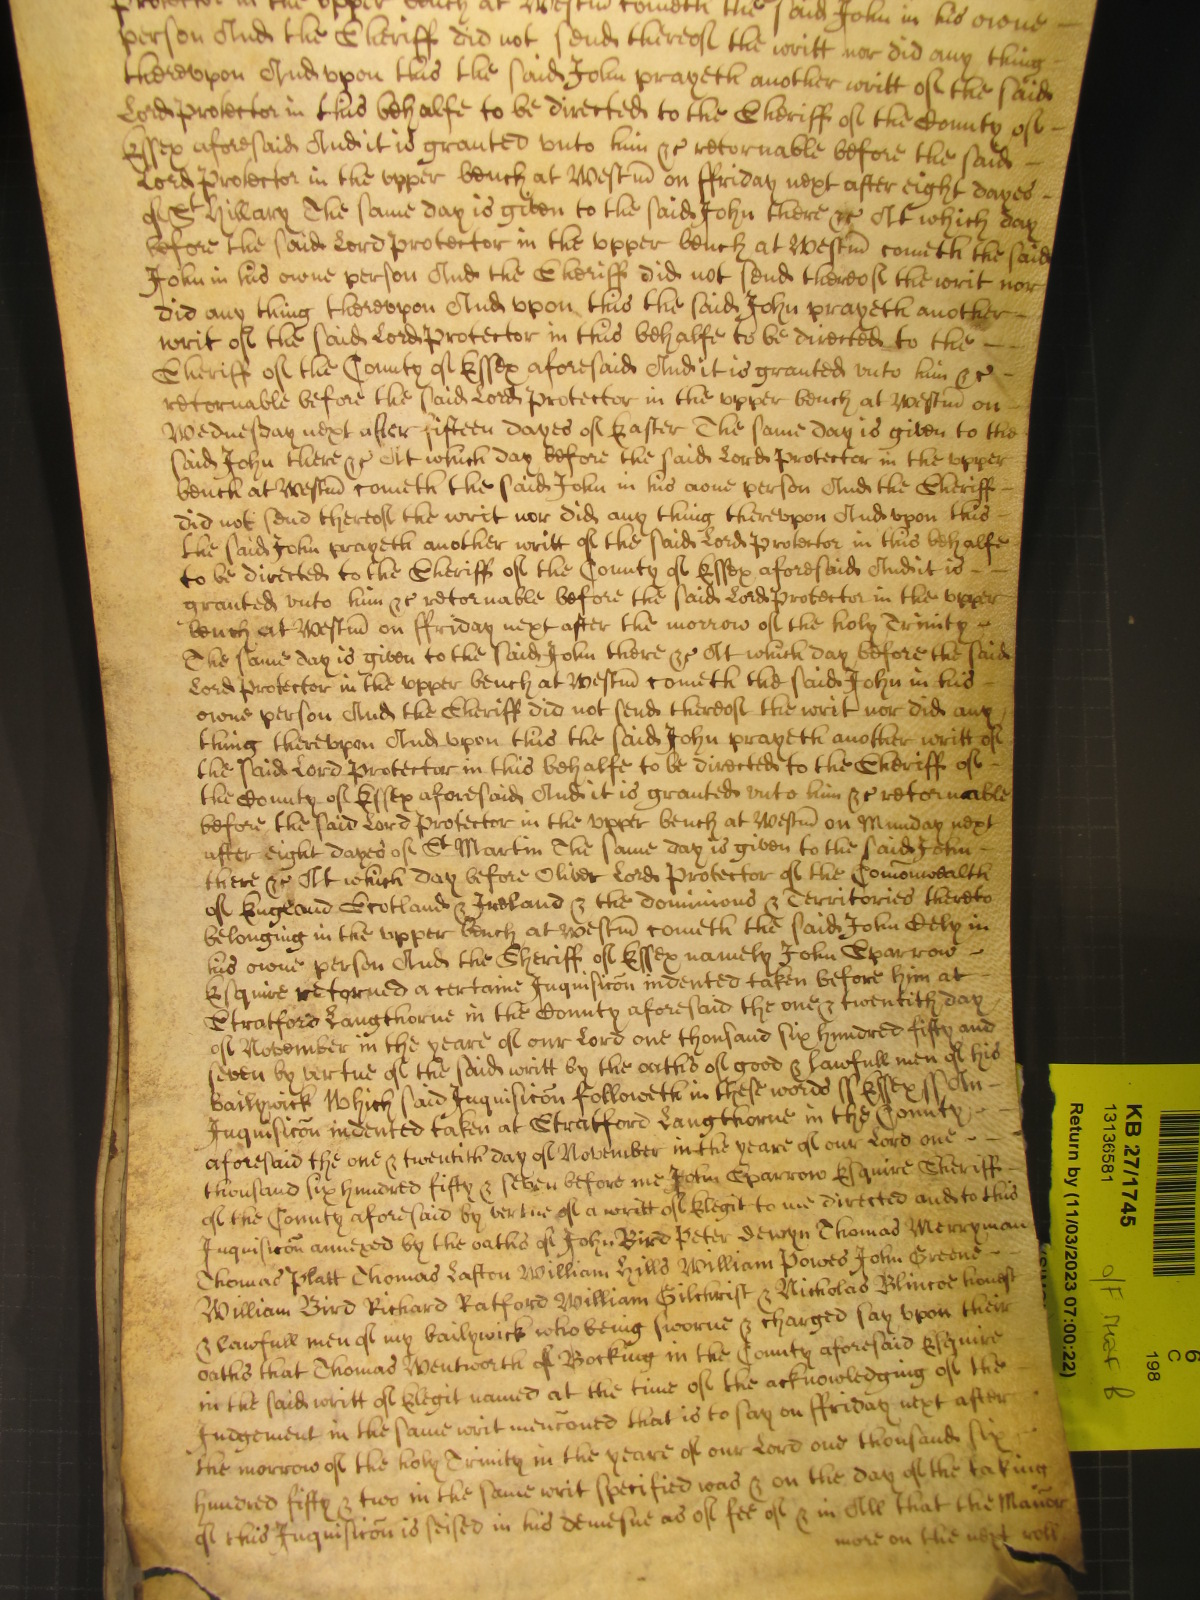 Protector in the upper bench at Westm̄ cometh the said John in his owne
person And the Sheriff did not send thereof the writt nor did any thing
therevpon And vpon this the said John prayeth another writt of the said
Lord Protector in this behalfe to be directed to the Sheriff of the County of
Essex aforesaid And it is granted vnto him &c retornable before the said
Lord Protector in the vpper bench at Westm̄ on ffriday next after eight dayes
of St Hillary The same day is given to the said John there &c At which day
before the said Lord Protector in the vpper bench at Westm̄ cometh the said
John in his owne person And the Sheriff did not send thereof the writ nor
did any thing therevpon And vpon this the said John prayeth another
writ of the said Lord Protector in this behalfe to be directed to the
Sheriff of the County of Essex aforesaid And it is granted vnto him &c
retornable before the said Lord Protector in the vpper bench at Westm̄ on
Wednesday next after fifteen dayes of Easter The same day is given to the
said John there &c At which day before the said Lord Protector in the vpper
bench at Westm̄ cometh the said John in his owne person And the Sheriff
did not send thereof the writ nor did any thing therevpon And vpon this
the said John prayeth another writt of the said Lord Protector in this behalfe
to be directed to the Sheriff of the County of Essex aforesaid And it is
granted vnto him &c retornable before the said Lord Protector in the vpper
bench at Westm̄ on ffriday next after the morrow of the holy Trinity
The same day is given to the said John there &c At which day before the said
Lord Protector in the vpper bench at Westm̄ cometh the said John in his
owne person And the Sheriff did not send thereof the writ nor did any
thing therevpon And vpon this the said John prayeth another writt of
the said Lord Protector in this behalfe to be directed to the Sheriff of
the County of Essex aforesaid And it is granted vnto him &c retornable
before the said Lord Protector in the vpper bench at Westm̄ on Munday next
after eight dayes of St Martin The same day is given to the said John
there &c At which day before Oliver Lord Protector of the Com̄onwealth
of England Scotland & Ireland & the dominions & Territories thereto
belonging in the vpper bench at Westm̄ cometh the said John Cely in
his owne person And the Sheriff of Essex namely John Sparrow
Esquire retorned a certaine Inquisic̄on indented taken before him at
Stratford Langthorne in the County aforesaid the one & twentith day
of November in the yeare of our Lord one thousand six hundred fifty and
seven by vertue of the said writt by the oaths of good & lawfull men of his
bailywick Which said Inquisic̄on followeth in these words ss Essex ss An
Inquisic̄on indented taken at Stratford Langthorne in the County
aforesaid the one & twentith day of November in the yeare of our Lord one
thousand six hundred fifty & seven before me John Sparrow Esquire Sheriff
of the County aforesaid by vertue of a writt of Elegit to me directed and to this
Inquisic̄on annexed by the oaths of John Bird Peter Thomas Merryman
Thomas Platt Thomas Lafton William Hills William Powes John Greene
William Bird Richard Ratford William Gilchrist & Nicholas Blincoe honest
& lawfull men of my bailywick who being sworne & charged say vpon their
oaths that Thomas Wentworth of Bocking in the County aforesaid Esquire
in the said writt of Elegit named at the time of the acknowledging of the
Judgement in the same writ menc̄oned that is to say on ffriday next after
the morrow of the holy Trinity in the yeare of our Lord one thousand six
hundred fifty & two in the same writ specified was & on the day of the taking
of this Inquisic̄on is seised in his demesne as of fee of & in All that the Mannor
more on the next roll
KB 27/1745
13136581
Return by (11/03/2023 07:00:22)
6
C
198